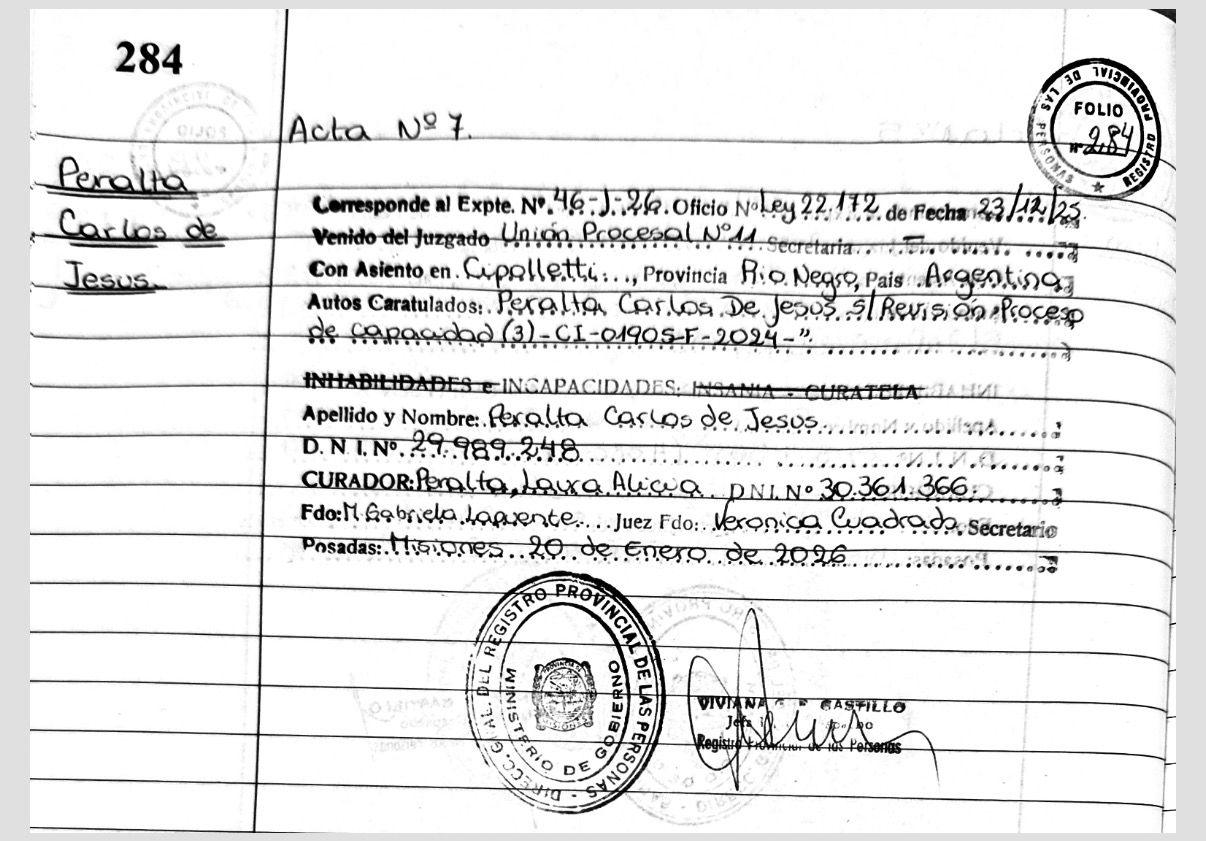 284
Acta Nº 7.
REGISTRO PROVINCIAL DE LAS PERSONAS
FOLIO
Nº 284
Peralta
Carlos de
Jesus.
Corresponde al Expte. Nº. 46-J-26. Oficio Nº Ley 22.172 de Fecha 23/12/25.
Venido del Juzgado Unión Procesal Nº 11 Secretaria
Con Asiento en. Cipolletti..., Provincia Rio Negro, Pais Argentina
Autos Caratulados: Peralta Carlos De Jesus s/ Revisión Proceso
de capacidad (3)-CI-01905-F-2024-"
INHABILIDADES e INCAPACIDADES: INSANIA - CURATELA
Apellido y Nombre: Peralta Carlos de Jesus
D. N I. Nº. 29.989.248
CURADOR: Peralta, Laura Alicia DNI. Nº 30.361.366.
Fdo: M. Gabriela Lapuente... Juez Fdo: Veronica Cuadrado. Secretario
Posadas: Misiones 20 de Enero de 2026
DIRECC. GRAL. DEL REGISTRO PROVINCIAL DE LAS PERSONAS
MINISTERIO DE GOBIERNO
VIVIANA CASTILLO
Registro Provincial de las Personas